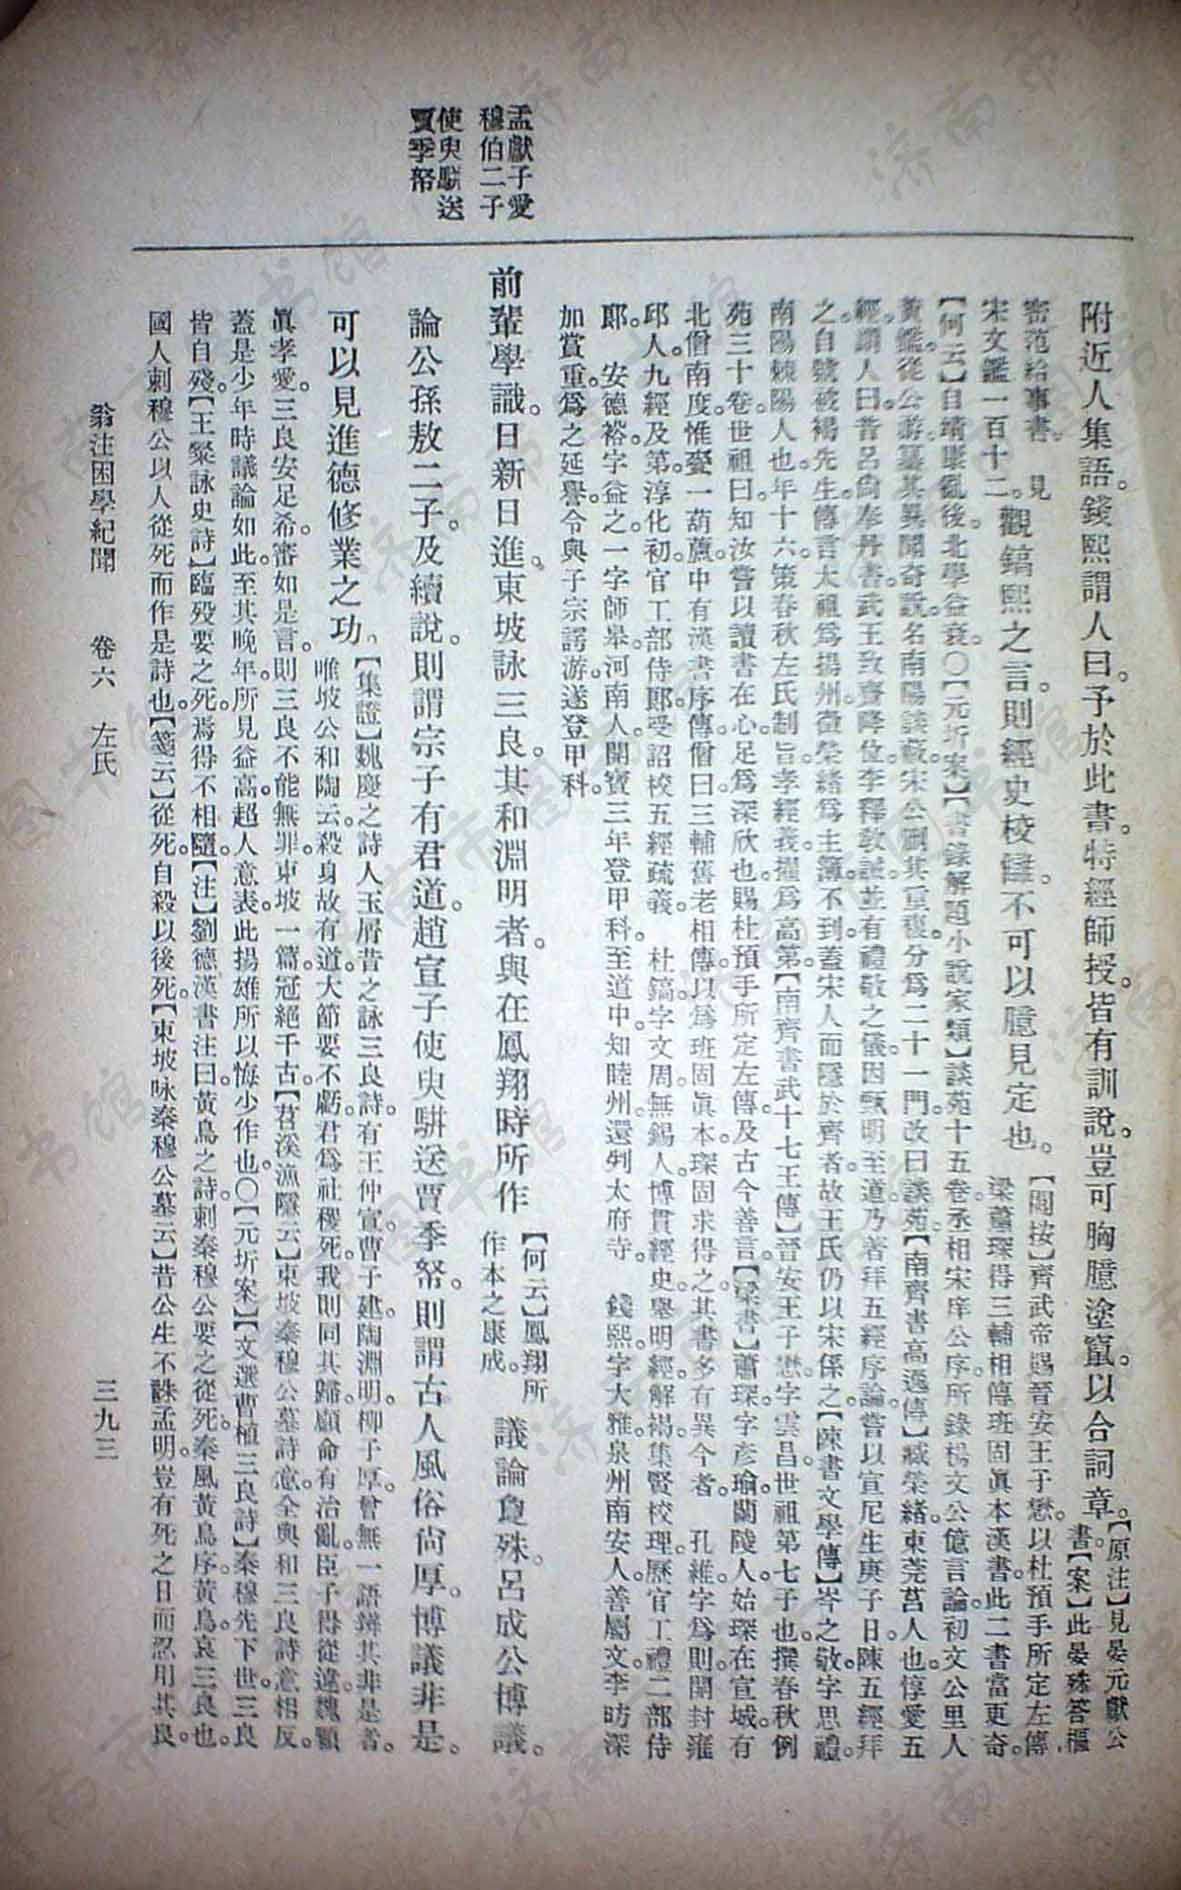 孟獻子愛
穆伯二子
使臾駢送
賈季帑
附近人集語。錢熙謂人曰。予於此書。特經師授。皆有訓說。豈可胸臆塗竄。以合詞章。【原注】見晏元獻公
書【案】此晏殊答樞
密范給事書。見
宋文鑑一百十二。觀鎬熙之言。則經史校讎。不可以臆見定也。【閻按】齊武帝賜晉安王子懋。以杜預手所定左傳。
梁蕭琛得三輔相傳班固眞本漢書。此二書當更奇。
【何云】自靖康亂後。北學益衰。〇【元圻案】【書錄解題小說家類】談苑十五卷。丞相宋庠公序。所錄楊文公億言論。初文公里人
黃鑑從公游。纂其異聞奇說。名南陽談藪。宋公刪其重複。分爲二十一門。改曰談苑。【南齊書高逸傳】臧榮緒。東莞莒人也。惇愛五
經。謂人曰。昔呂尙奉丹書。武王致齋降位。李釋敎誡。並有禮敬之儀。因甄明至道。乃著拜五經序論。嘗以宣尼生庚子日。陳五經拜
之。自號被褐先生。傳言太祖爲揚州。徵榮緒爲主簿。不到。蓋宋人而隱於齊者。故王氏仍以宋係之。【陳書文學傳】岑之敬。字思禮。
南陽棘陽人也。年十六。策春秋左氏制旨孝經義。擢爲高第。【南齊書武十七王傳】晉安王子懋。字雲昌。世祖第七子也。撰春秋例
苑三十卷。世祖曰。知汝嘗以讀書在心。足爲深欣也。賜杜預手所定左傳。及古今善言。【梁書】蕭琛字彥瑜。蘭陵人。始琛在宣城。有
北僧南度。惟齎一葫蘆。中有漢書序傳。僧曰。三輔舊老相傳。以爲班固眞本。琛固求得之。其書多有異今者。　孔維字爲則。開封雍
邱人。九經及第。淳化初。官工部侍郞。受詔校五經疏義。　杜鎬。字文周。無錫人。博貫經史。舉明經。解褐集賢校理。歷官工禮二部侍
郞。　安德裕。字益之。一字師皋。河南人。開寶三年。登甲科。至道中。知睦州。還判太府寺。　錢熙。字大雅。泉州南安人。善屬文。李昉深
加賞重。爲之延譽。令與子宗諤游。遂登甲科。
前輩學識。日新日進。東坡詠三良。其和淵明者。與在鳳翔時所作【何云】鳳翔所
作本之康成。議論敻殊。呂成公博議。
論公孫敖二子。及續說。則謂宗子有君道。趙宣子使臾騈送賈季帑。則謂古人風俗尙厚。博議非是。
可以見進德修業之功。【集證】魏慶之詩人玉屑。昔之詠三良詩。有王仲宣。曹子建。陶淵明。柳子厚。曾無一語辨其非是者。
唯坡公和陶云。殺身故有道。大節要不虧。君爲社稷死。我則同其歸。顧命有治亂。臣子得從違。魏顆
眞孝愛。三良安足希。審如是言。則三良不能無罪。東坡一篇。冠絕千古。【苕溪漁隱云】東坡秦穆公墓詩。意全與和三良詩意相反。
蓋是少年時議論如此。至其晚年。所見益高。超人意表。此揚雄所以悔少作也。〇【元圻案】【文選曹植三良詩】秦穆先下世。三良
皆自殘。【王粲詠史詩】臨歿要之死。焉得不相隨。【注】劉德漢書注曰。黃鳥之詩。刺秦穆公要之從死。秦風黃鳥序。黃鳥。哀三良也。
國人刺穆公以人從死。而作是詩也。【箋云】從死。自殺以從死。【東坡咏秦穆公墓云】昔公生不誅孟明。豈有死之日而忍用其良。
翁注困學紀聞　卷六　左氏　三九三